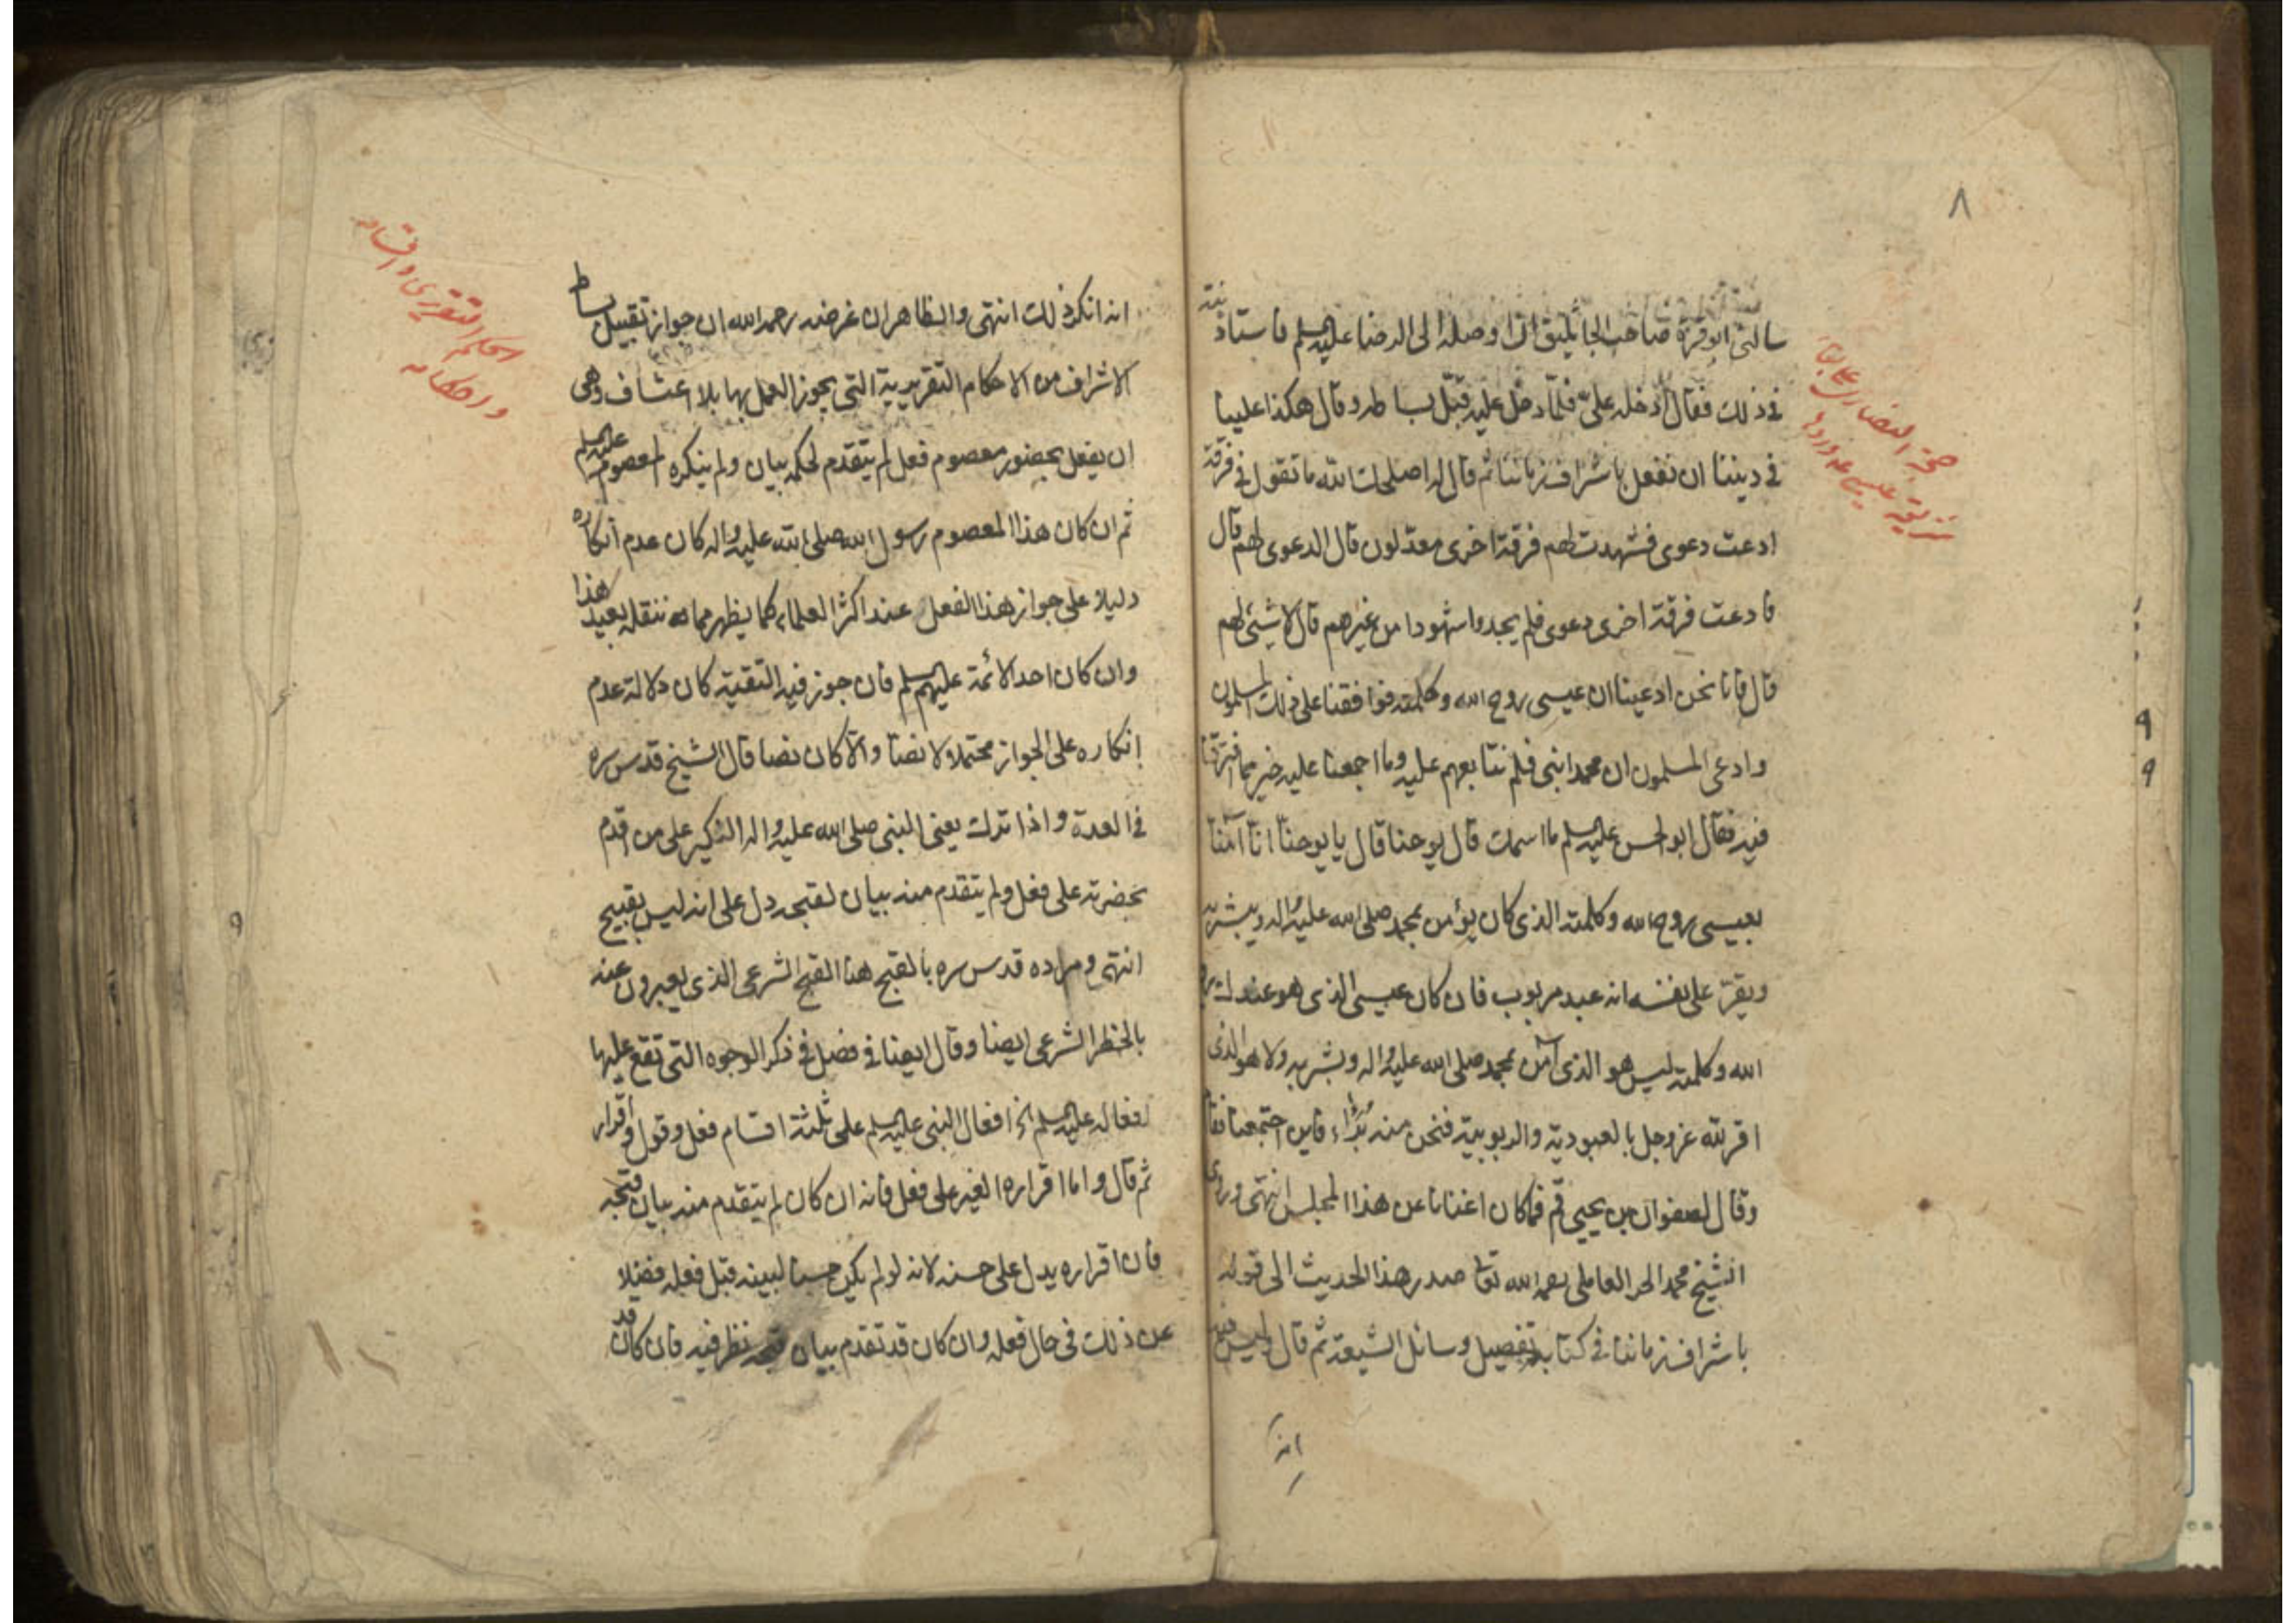 ٨
سالنى ابو قرة صاحب الجاثليق ان اوصله الى الرضا عليه السلم فاستاذنته
فى ذلك فقال ادخله علىّ فلمّا دخل عليه قبّل بساطه وقال هكذا علينا
فى ديننا ان نفعل باشراف زماننا ثم قال له اصلحك الله ما تقول فى فرقة
ادعت دعوى فشهدت لهم فرقة اخرى معدّلون قال الدعوى لهم قال
فادعت فرقة اخرى دعوى فلم يجدوا شهودا من غيرهم قال لا شيئ لهم
قال فانا نحن ادعينا ان عيسى روح الله وكلمته فوافقنا على ذلك المسلمون
وادعى المسلمون ان محمدا نبى فلم نتابعهم عليه وما اجمعنا عليه خير مما افترقنا
فيه فقال ابو الحسن عليه السلم ما اسمك قال يوحنا قال يا يوحنا انا آمنا
بعيسى روح الله وكلمته الذى كان يؤمن بمحمد صلى الله عليه واله ويبشر به
ويقرّ على نفسه انه عبد مربوب فان كان عيسى الذى هو عندك روح
الله وكلمته ليس هو الذى آمن بمحمد صلى الله عليه واله وبشر به ولا هو الذى
اقر لله عز وجل بالعبودية والربوبية فنحن منه بُرَٓاء فاين اجتمعنا فقام
وقال لصفوان بن يحيى قم فما كان اغنانا عن هذا المجلس انتهى وروى
الشيخ محمد الحر العاملى رحمه الله تعالى صدر هذا الحديث الى قوله
باشراف زماننا فى كتابه تفصيل وسائل الشيعة ثم قال وليس فيه
انه
حجة النصارى على بقاء
شريعة عيسى ع وردها
انه انكر ذلك انتهى والظاهر ان غرضه رحمه الله ان جواز تقبيل بساط
الاشراف من الاحكام التقريرية التى يجوز العمل بها بلا اعتساف وهى
ان يفعل بحضور معصوم فعل لم يتقدم لحكمه بيان ولم ينكره المعصوم عليه السلم
ثم ان كان هذا المعصوم رسول الله صلى الله عليه واله كان عدم انكاره
دليلا على جواز هذا الفعل عند اكثر العلماء كما يظهر مما ننقله بعيد هذا
وان كان احد الائمة عليهم السلم فان جوز فيه التقية كان دلالة عدم
انكاره على الجواز محتملا ولا نصّا والّا كان نصا قال الشيخ قدس سره
فى العدة واذا ترك يعنى النبى صلى الله عليه واله النكير على من اقدم
بحضرته على فعل ولم يتقدم منه بيان لقبحه دل على انه ليس بقبيح
انتهى ومراده قدس سره بالقبح هنا القبح الشرعى الذى يعبرون عنه
بالحظر الشرعى ايضا وقال ايضا فى فصل فى ذكر الوجوه التى تقع عليها
افعاله عليه السلم الخ افعال النبى عليه السلم على ثلثة اقسام فعل وقول واقرار
ثم قال واما اقراره الغير على فعل فانه ان كان لم يتقدم منه بيان قبحه
فان اقراره يدل على حسنه لانه لو لم يكن حسنا لبينه قبل فعله فضلا
عن ذلك فى حال فعله وان كان قد تقدم بيان قبحه نظر فيه فان كان قد
الحكم التقريرى واقسامه
واحكامه